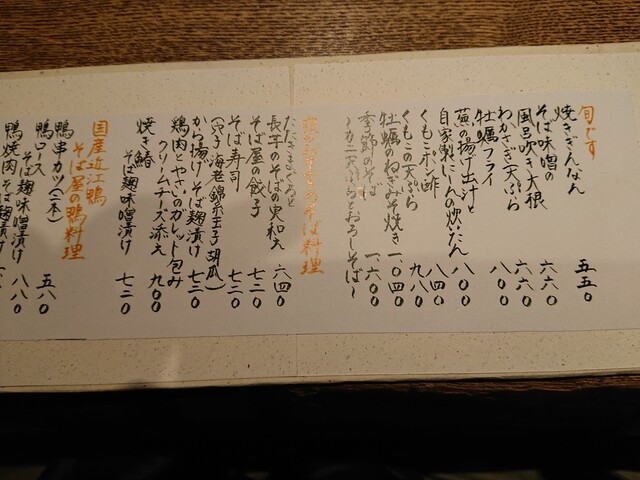 旬です
焼きぎんなん 五五〇
そば味噌の
風呂吹き大根 六六〇
わかさぎ天ぷら 六六〇
牡蠣フライ 八〇〇
蕪の揚げ出汁と
自家製にしんの炊いたん 八〇〇
くもこポン酢 八四〇
くもこの天ぷら 九八〇
牡蠣のねぎみそ焼き 一〇四〇
季節のそば 一六〇〇
〜カニ天ぷらとおろしそば〜
そば料理
たたきまぐろと
長芋のそばの実和え 六四〇
そば屋の餃子 七二〇
そば寿司 七二〇
(穴子 海老 錦糸玉子 胡瓜)
から揚げ そば麹漬け 七二〇
鶏肉とやさいのガレット包み
クリームチーズ添え 九〇〇
焼き鰆
そば麹味噌漬け 七二〇
国産近江鴨
そば屋の鴨料理
鴨串カツ(二本) 五八〇
鴨ロース
そば麹味噌漬け 八八〇
鴨焼肉 そば麹漬け